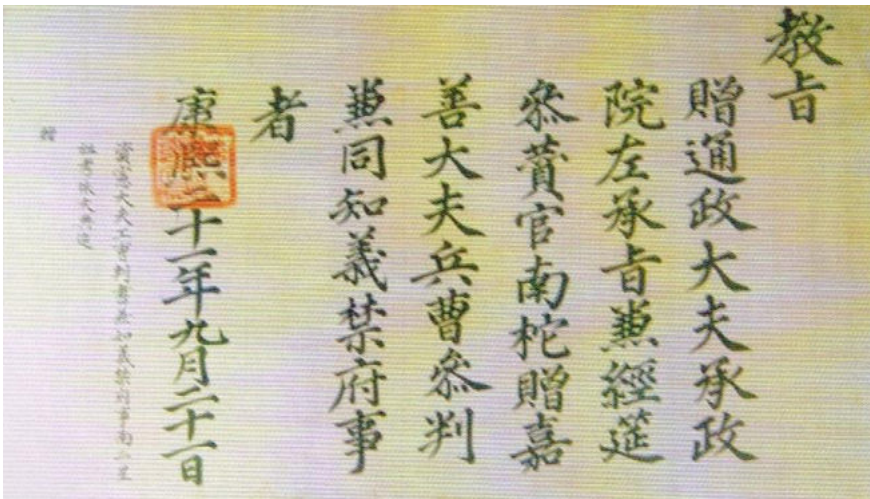 教旨
贈通政大夫承政
院左承旨兼經筵
叅賛官南柁贈嘉
善大夫兵曹叅判
兼同知義禁府事
者
康熙二十一年九月二十一日
資憲大夫工曹判書兼知義禁府事南二星
祖考依大典追
贈